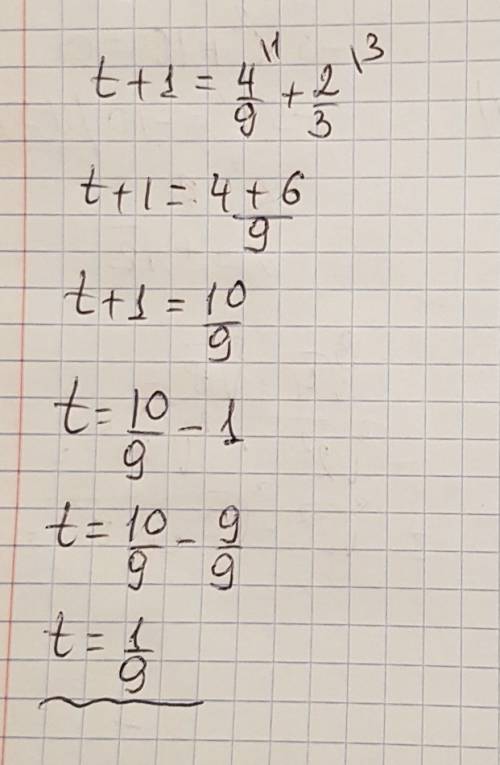 t + 1 = 4/9 \1 + 2/3 \3
t + 1 = 4 + 6/9
t + 1 = 10/9
t = 10/9 - 1
t = 10/9 - 9/9
t = 1/9